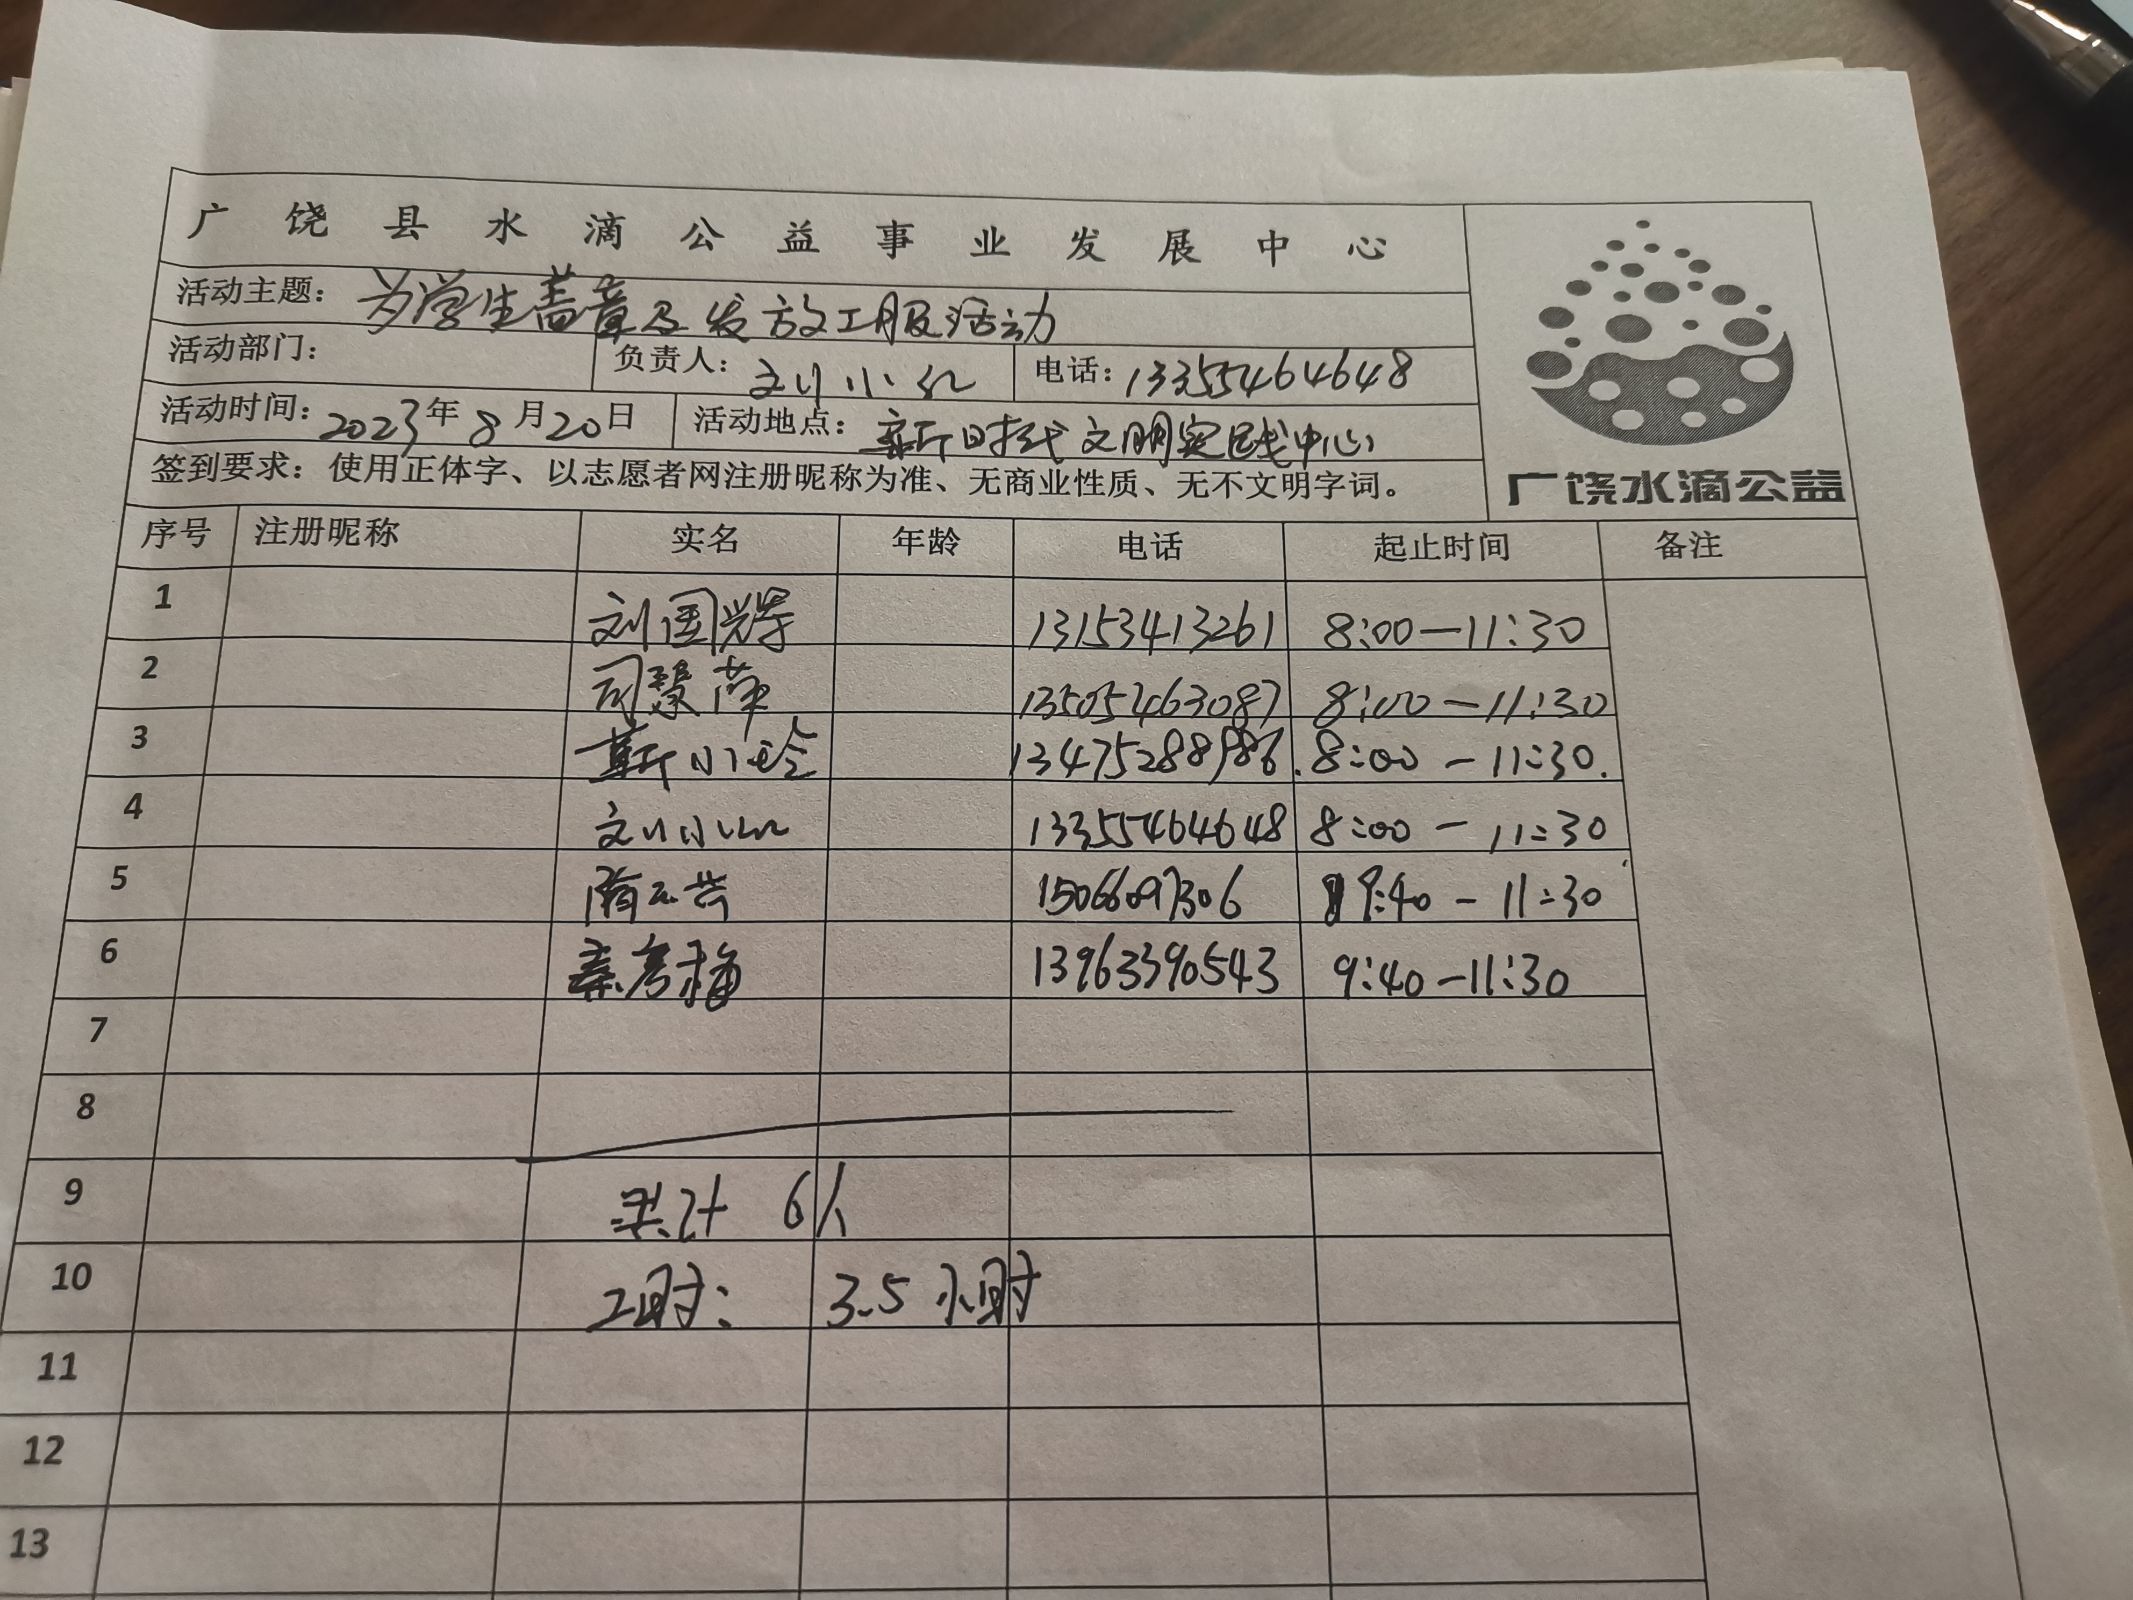 广饶县水滴公益事业发展中心
活动主题：为学生盖章及发放工服活动
活动部门： 负责人：刘小红 电话：13355464648
活动时间：2023年8月20日 活动地点：新时代文明实践中心
签到要求：使用正体字、以志愿者网注册昵称为准、无商业性质、无不文明字词。
广饶水滴公益
序号 注册昵称 实名 年龄 电话 起止时间 备注
1 刘国辉 13153413261 8:00—11:30
2 司慧萍 13505463087 8:00—11:30
3 靳小玲 13475288986 8:00—11:30.
4 刘小红 13355464648 8:00—11:30
5 隋 15066097306 9:40—11:30
6 秦秀梅 13963390543 9:40—11:30
7
8
9 累计 6人
10 工时： 3.5小时
11
12
13